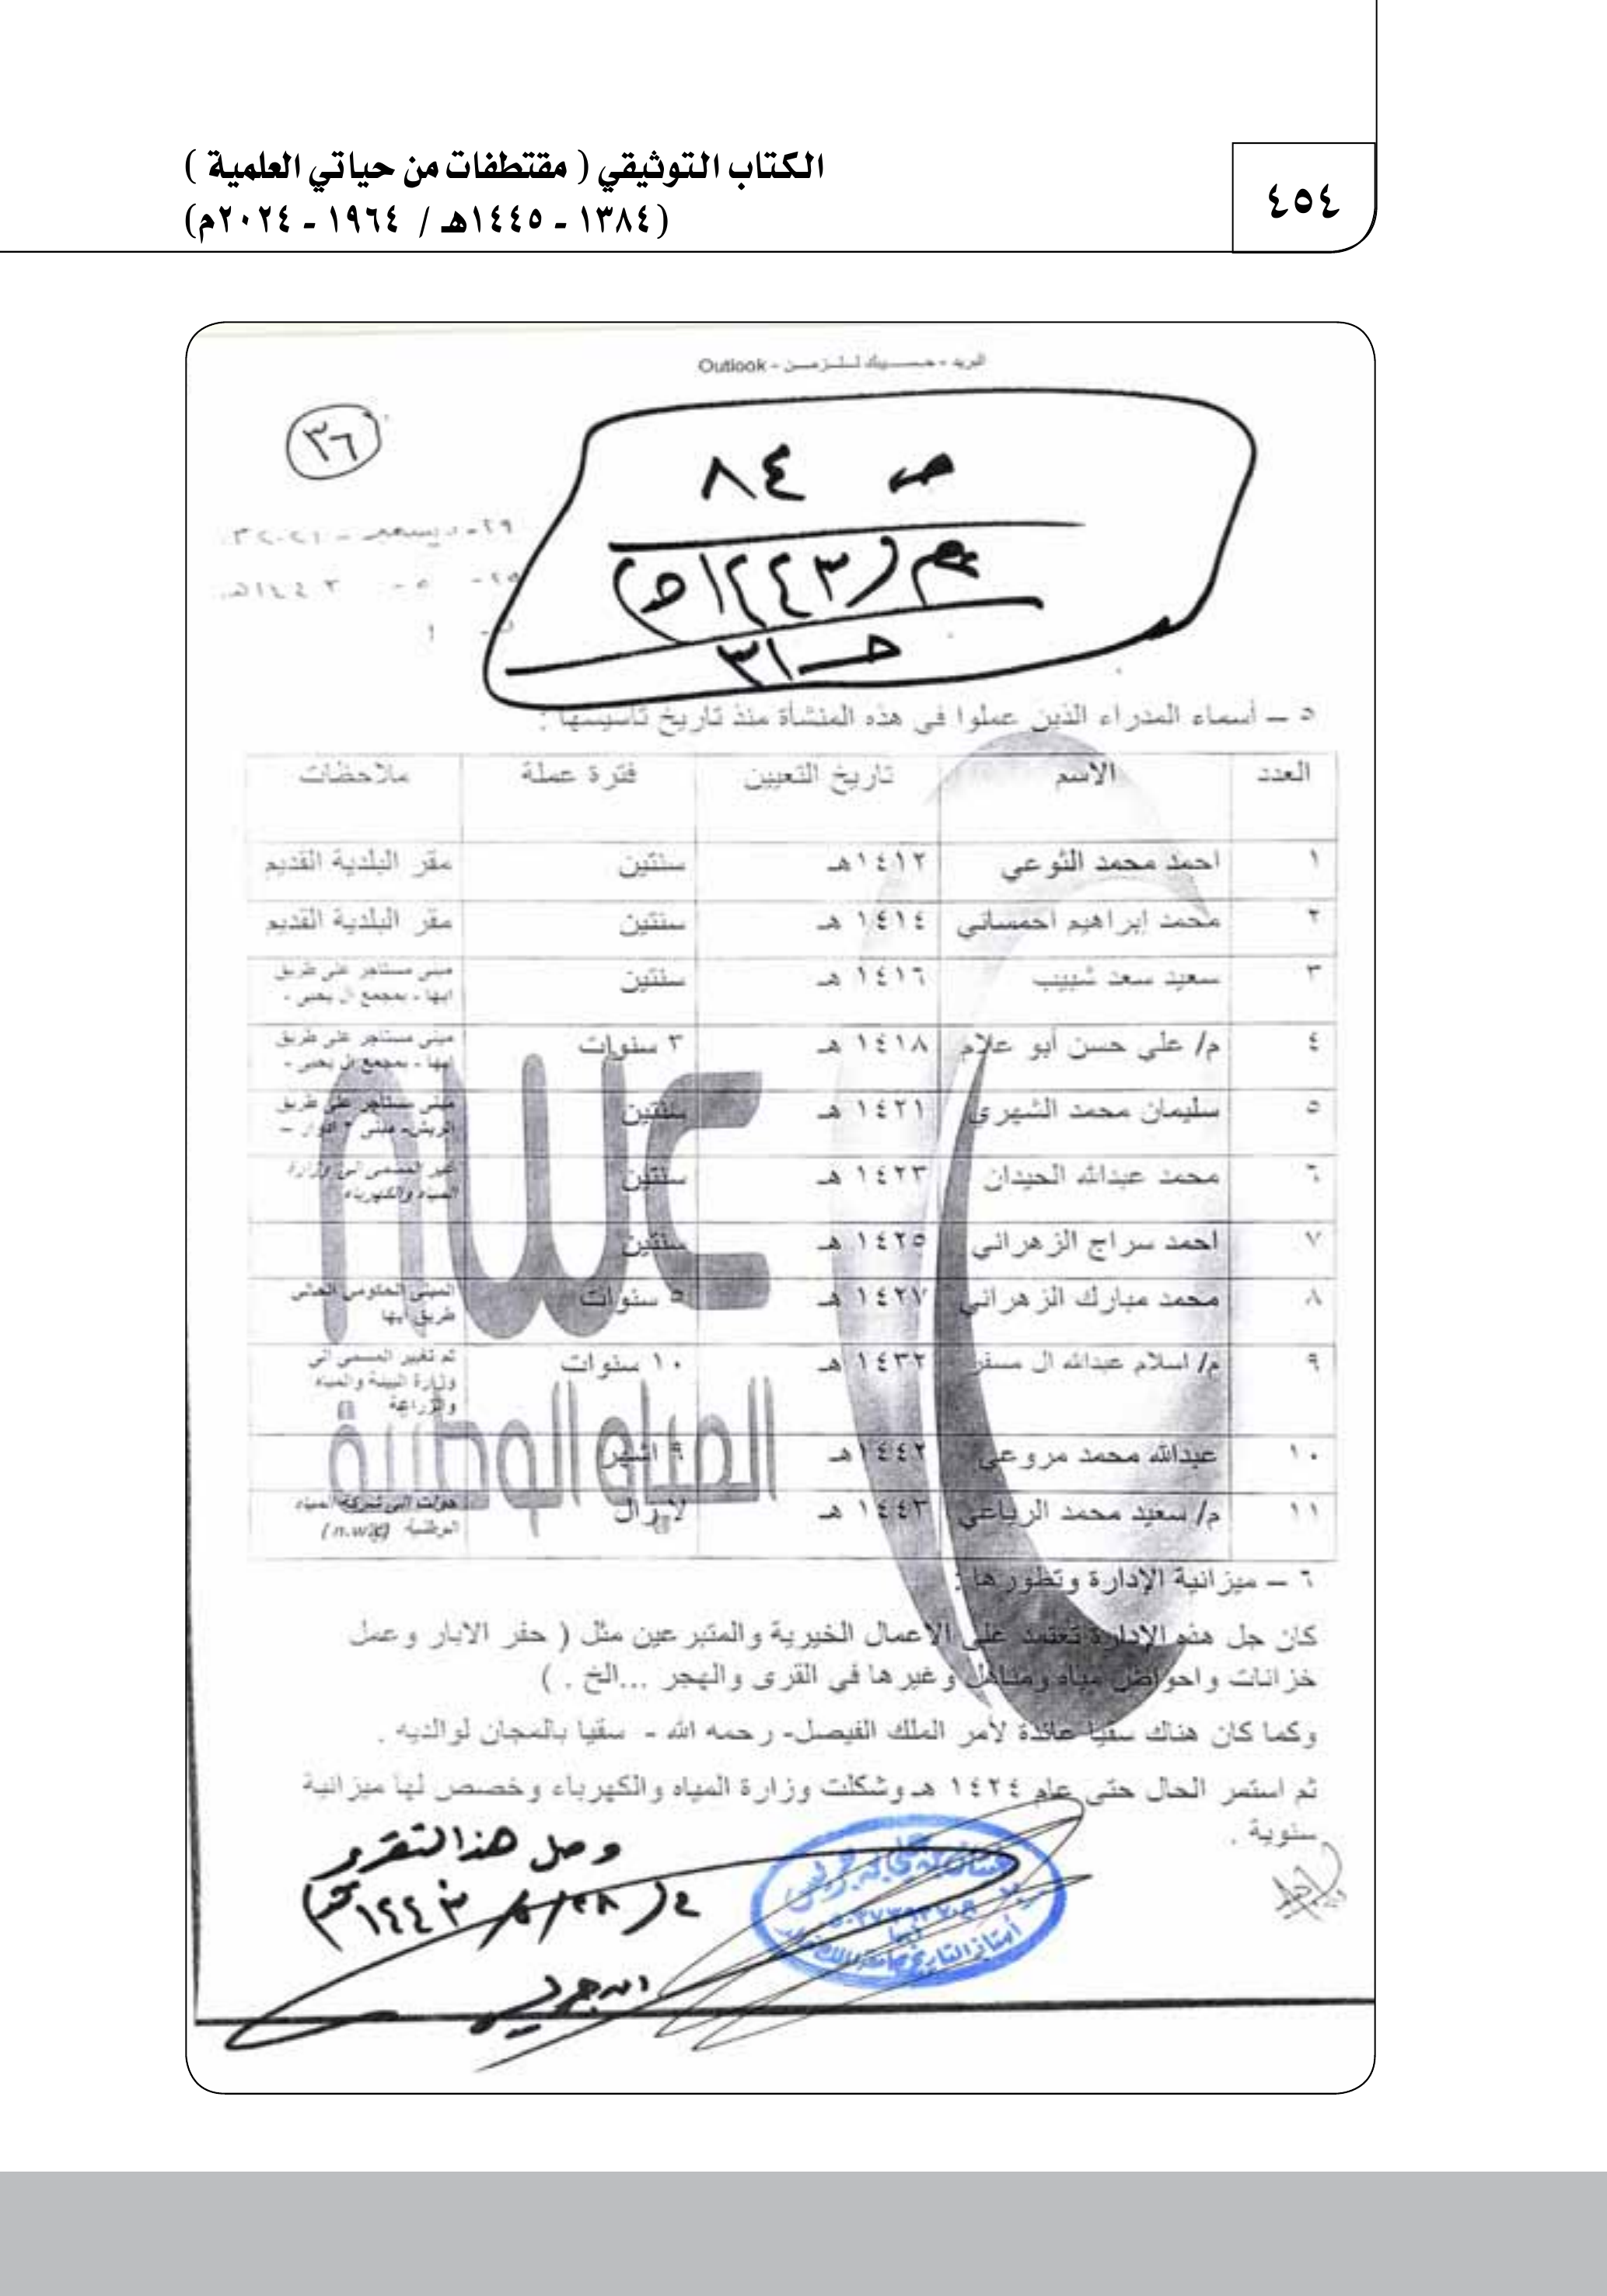 ٤٥٤
الكتاب التوثيقي ( مقتطفات من حياتي العلمية )
(١٣٨٤ - ١٤٤٥هـ / ١٩٦٤ - ٢٠٢٤م)
البريد - حسيبك للزمن - Outlook
٣٦
ص ٨٤
(١٤٤٣هـ)
حـ ٣١
٢٩- ديسمبر -
٢٥- ٥ - ١٤٤٣هـ
٥ – أسماء المدراء الذين عملوا في هذه المنشأة منذ تاريخ تأسيسها :
العدد الاسم تاريخ التعيين فترة عملة ملاحظات
١ احمد محمد النوعي ١٤١٢هـ سنتين مقر البلدية القديم
٢ محمد إبراهيم احمساني ١٤١٤ هـ سنتين مقر البلدية القديم
٣ سعيد سعد شبيب ١٤١٦ هـ سنتين مبنى مستاجر على طريق
ابها - بمجمع ال يحيى -
٤ م/ علي حسن أبو علام ١٤١٨ هـ ٣ سنوات مبنى مستاجر على طريق
ابها - بمجمع ال يحيى -
٥ سليمان محمد الشهري ١٤٢١ هـ سنتين مبنى مستاجر على طريق
الريش- مبنى ٣ ادوار –
٦ محمد عبدالله الحيدان ١٤٢٣ هـ سنتين غير المسمى الى وزارة
المياه والكهرباء
٧ احمد سراج الزهراني ١٤٢٥ هـ سنتين
٨ محمد مبارك الزهراني ١٤٢٧ هـ ٥ سنوات المبنى الحكومي الحالي
طريق ابها
٩ م/ اسلام عبدالله ال مسفر ١٤٣٢ هـ ١٠ سنوات تم تغيير المسمى الى
وزارة البيئة والمياه
والزراعة
١٠ عبدالله محمد مروعي ١٤٤٢هـ ٩ اشهر
١١ م/ سعيد محمد الرباعي ١٤٤٣ هـ لا زال حولت الى شركة المياه
الوطنية (n.w.c)
nwc
المياه الوطنية
٦ – ميزانية الإدارة وتطورها :
كان جل هذه الإدارة تعتمد على الاعمال الخيرية والمتبرعين مثل ( حفر الابار وعمل
خزانات واحواض مياه ومناهل وغيرها في القرى والهجر ...الخ . )
وكما كان هناك سقيا عائدة لأمر الملك الفيصل- رحمه الله - سقيا بالمجان لوالديه .
ثم استمر الحال حتى عام ١٤٢٤ هـ وشكلت وزارة المياه والكهرباء وخصص لها ميزانية
سنوية .
وصل هذا التقرير
أستاذ التاريخ